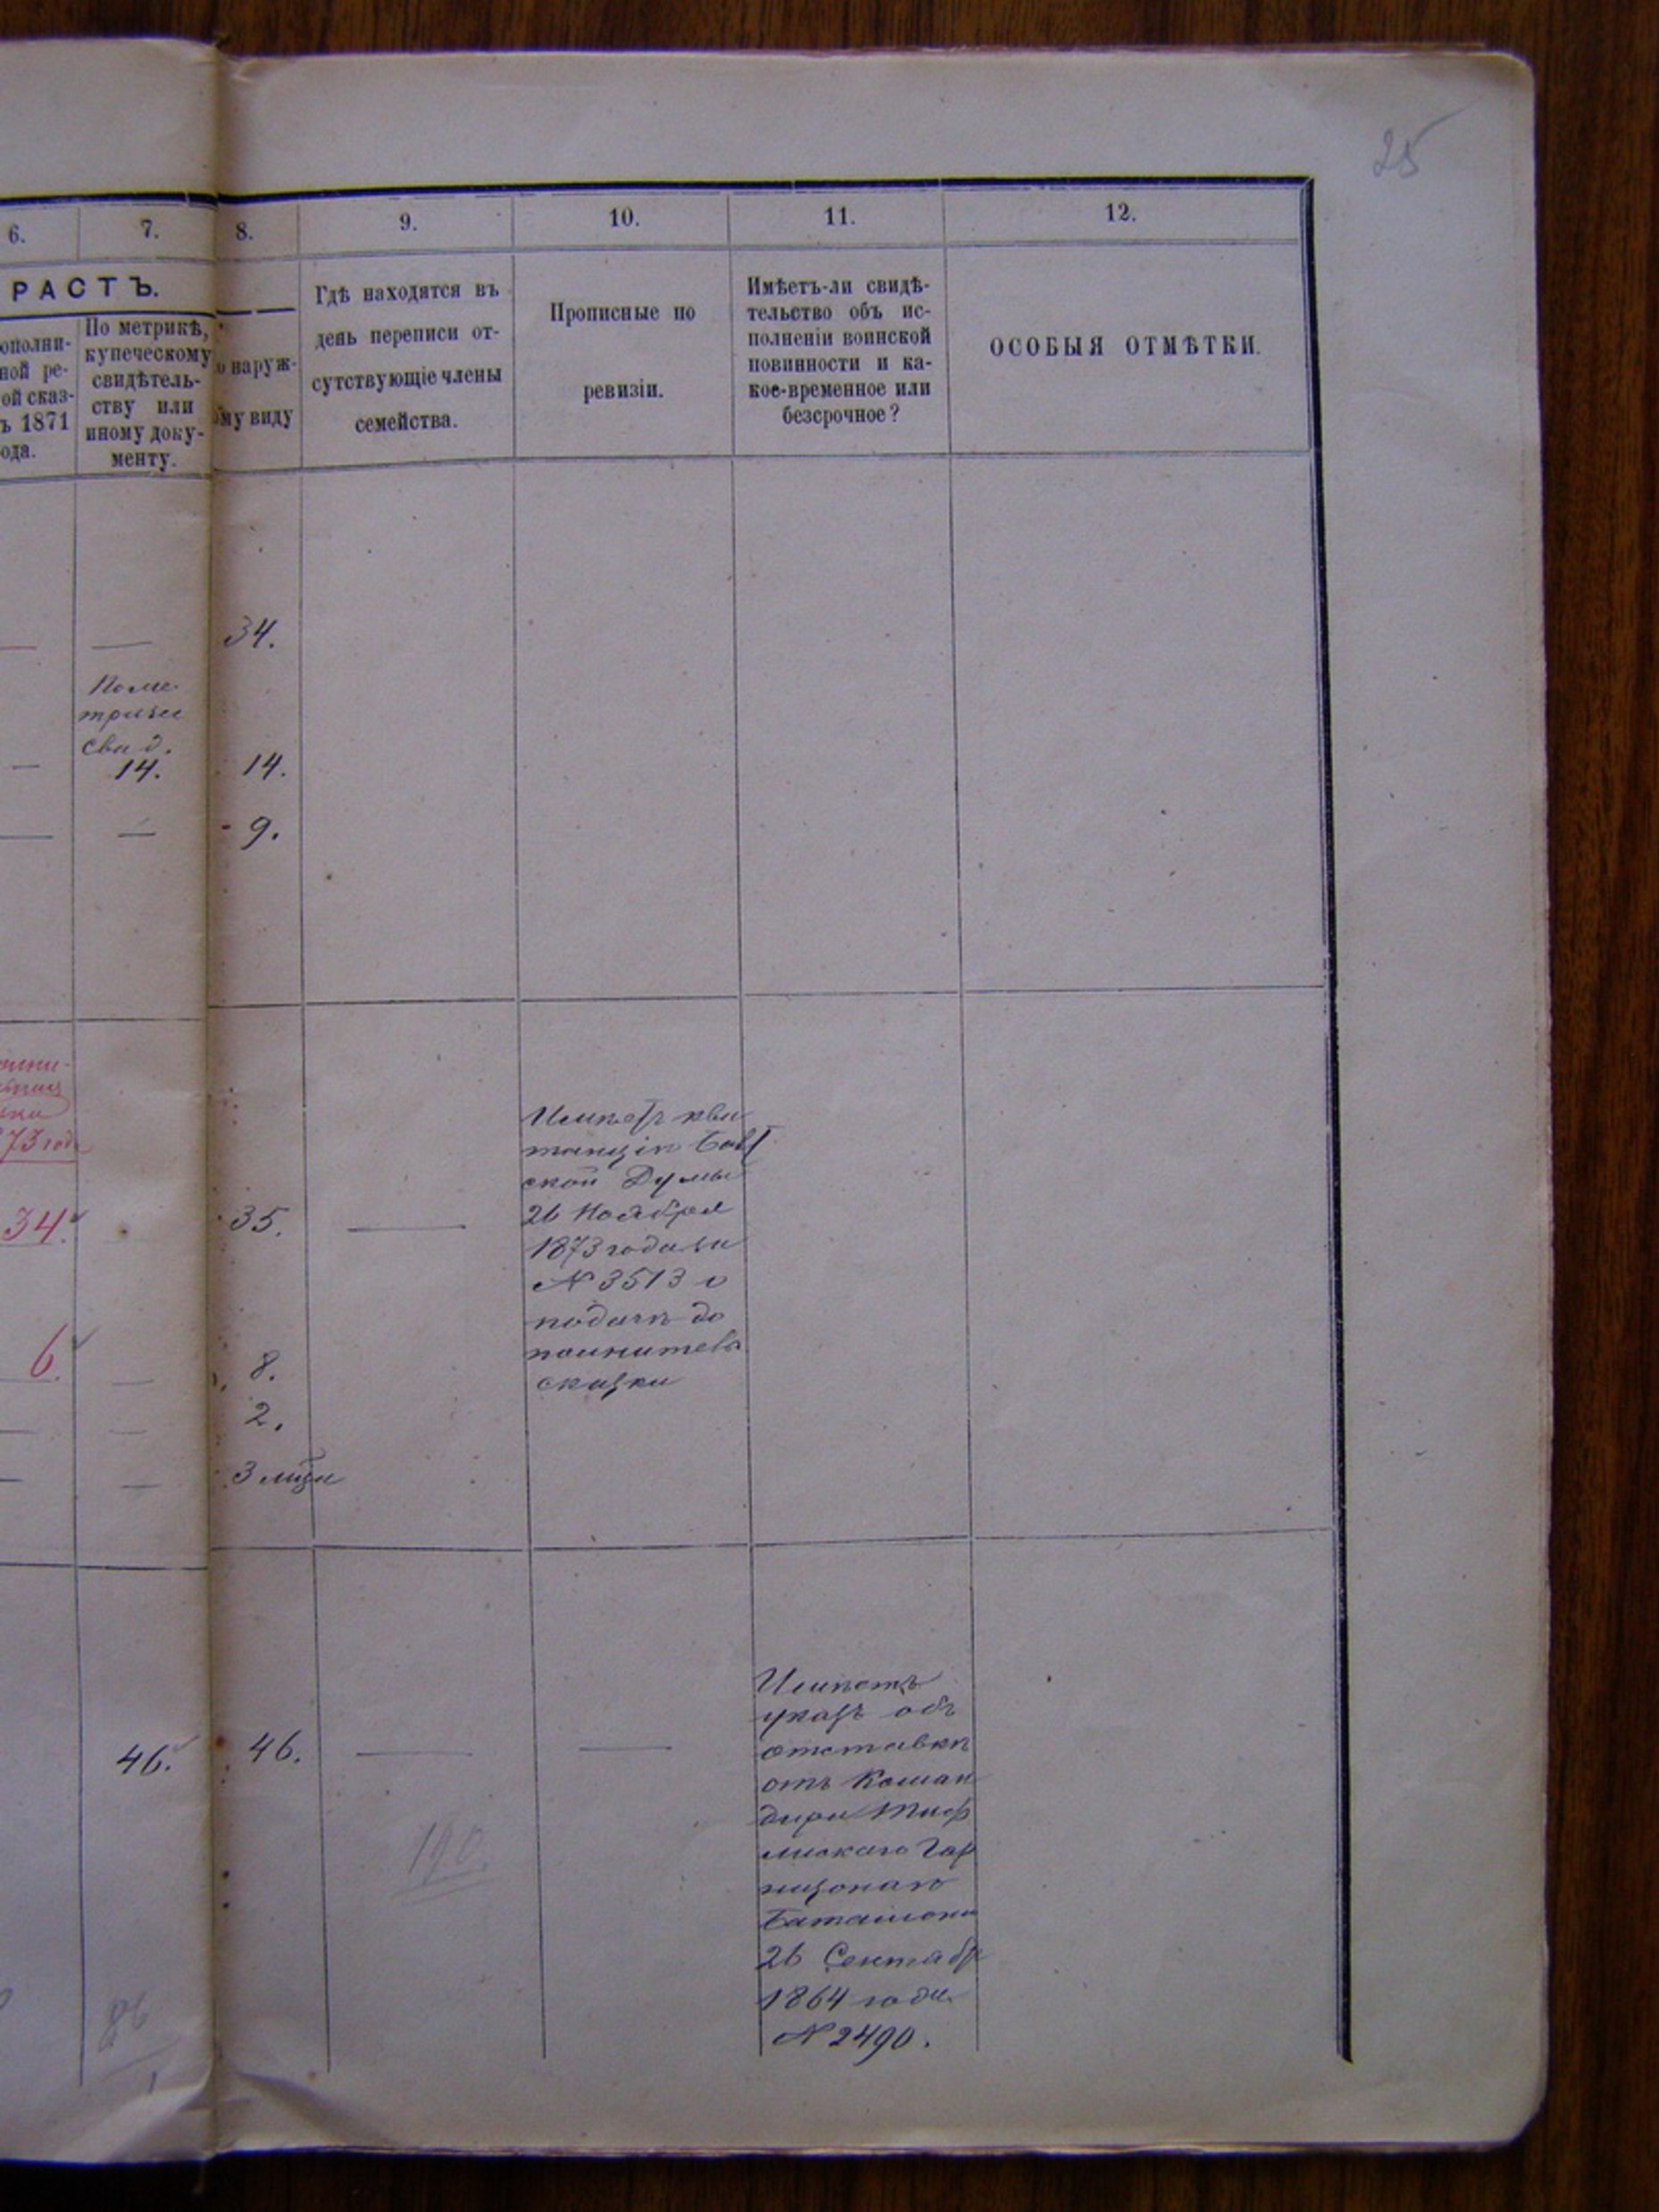 25
6.
7.
8.
9.
10.
11.
12.
РАСТЪ.
ополни-
ной ре-
ой сказ-
ъ 1871
ода.
По метрикѣ,
купеческому
свидѣтель-
ству или
иному доку-
менту.
о наруж-
ому виду
Гдѣ находятся въ
день переписи от-
сутствующіе члены
семейства.
Прописные по
ревизіи.
Имѣетъ-ли свидѣ-
тельство объ ис-
полненіи воинской
повинности и ка-
кое-временное или
безсрочное?
ОСОБЫЯ ОТМѢТКИ.
34.
По ме-
тричес
свид.
14.
14.
9.
73 года
34.
35.
Имѣетъ кви
танцію
ской Думы
26 Ноября
1873 года за
№ 3513 о
подачѣ до
полнител
сказки
6.
8.
2.
3 мѣц
46.
46.
190.
Имѣетъ
указъ объ
отставкѣ
отъ Коман
дира Тиф
лискаго Гар
низонаго
Баталіона
26 Сентябр
1864 года
№ 2490.
86
1